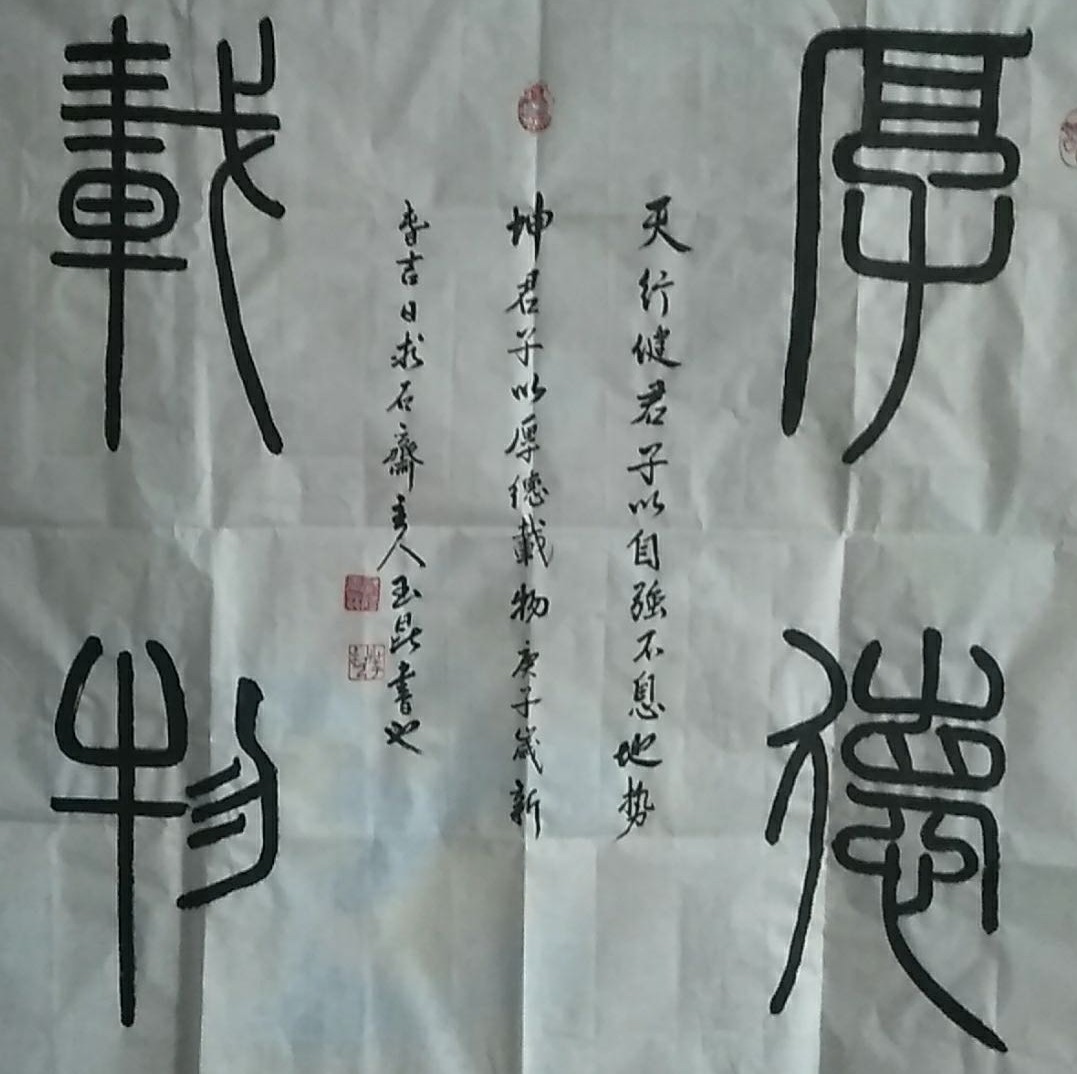 厚德
載物
天行健君子以自強不息地勢
坤君子以厚德載物庚子歲新
春吉日求石齋主人玉昆書也